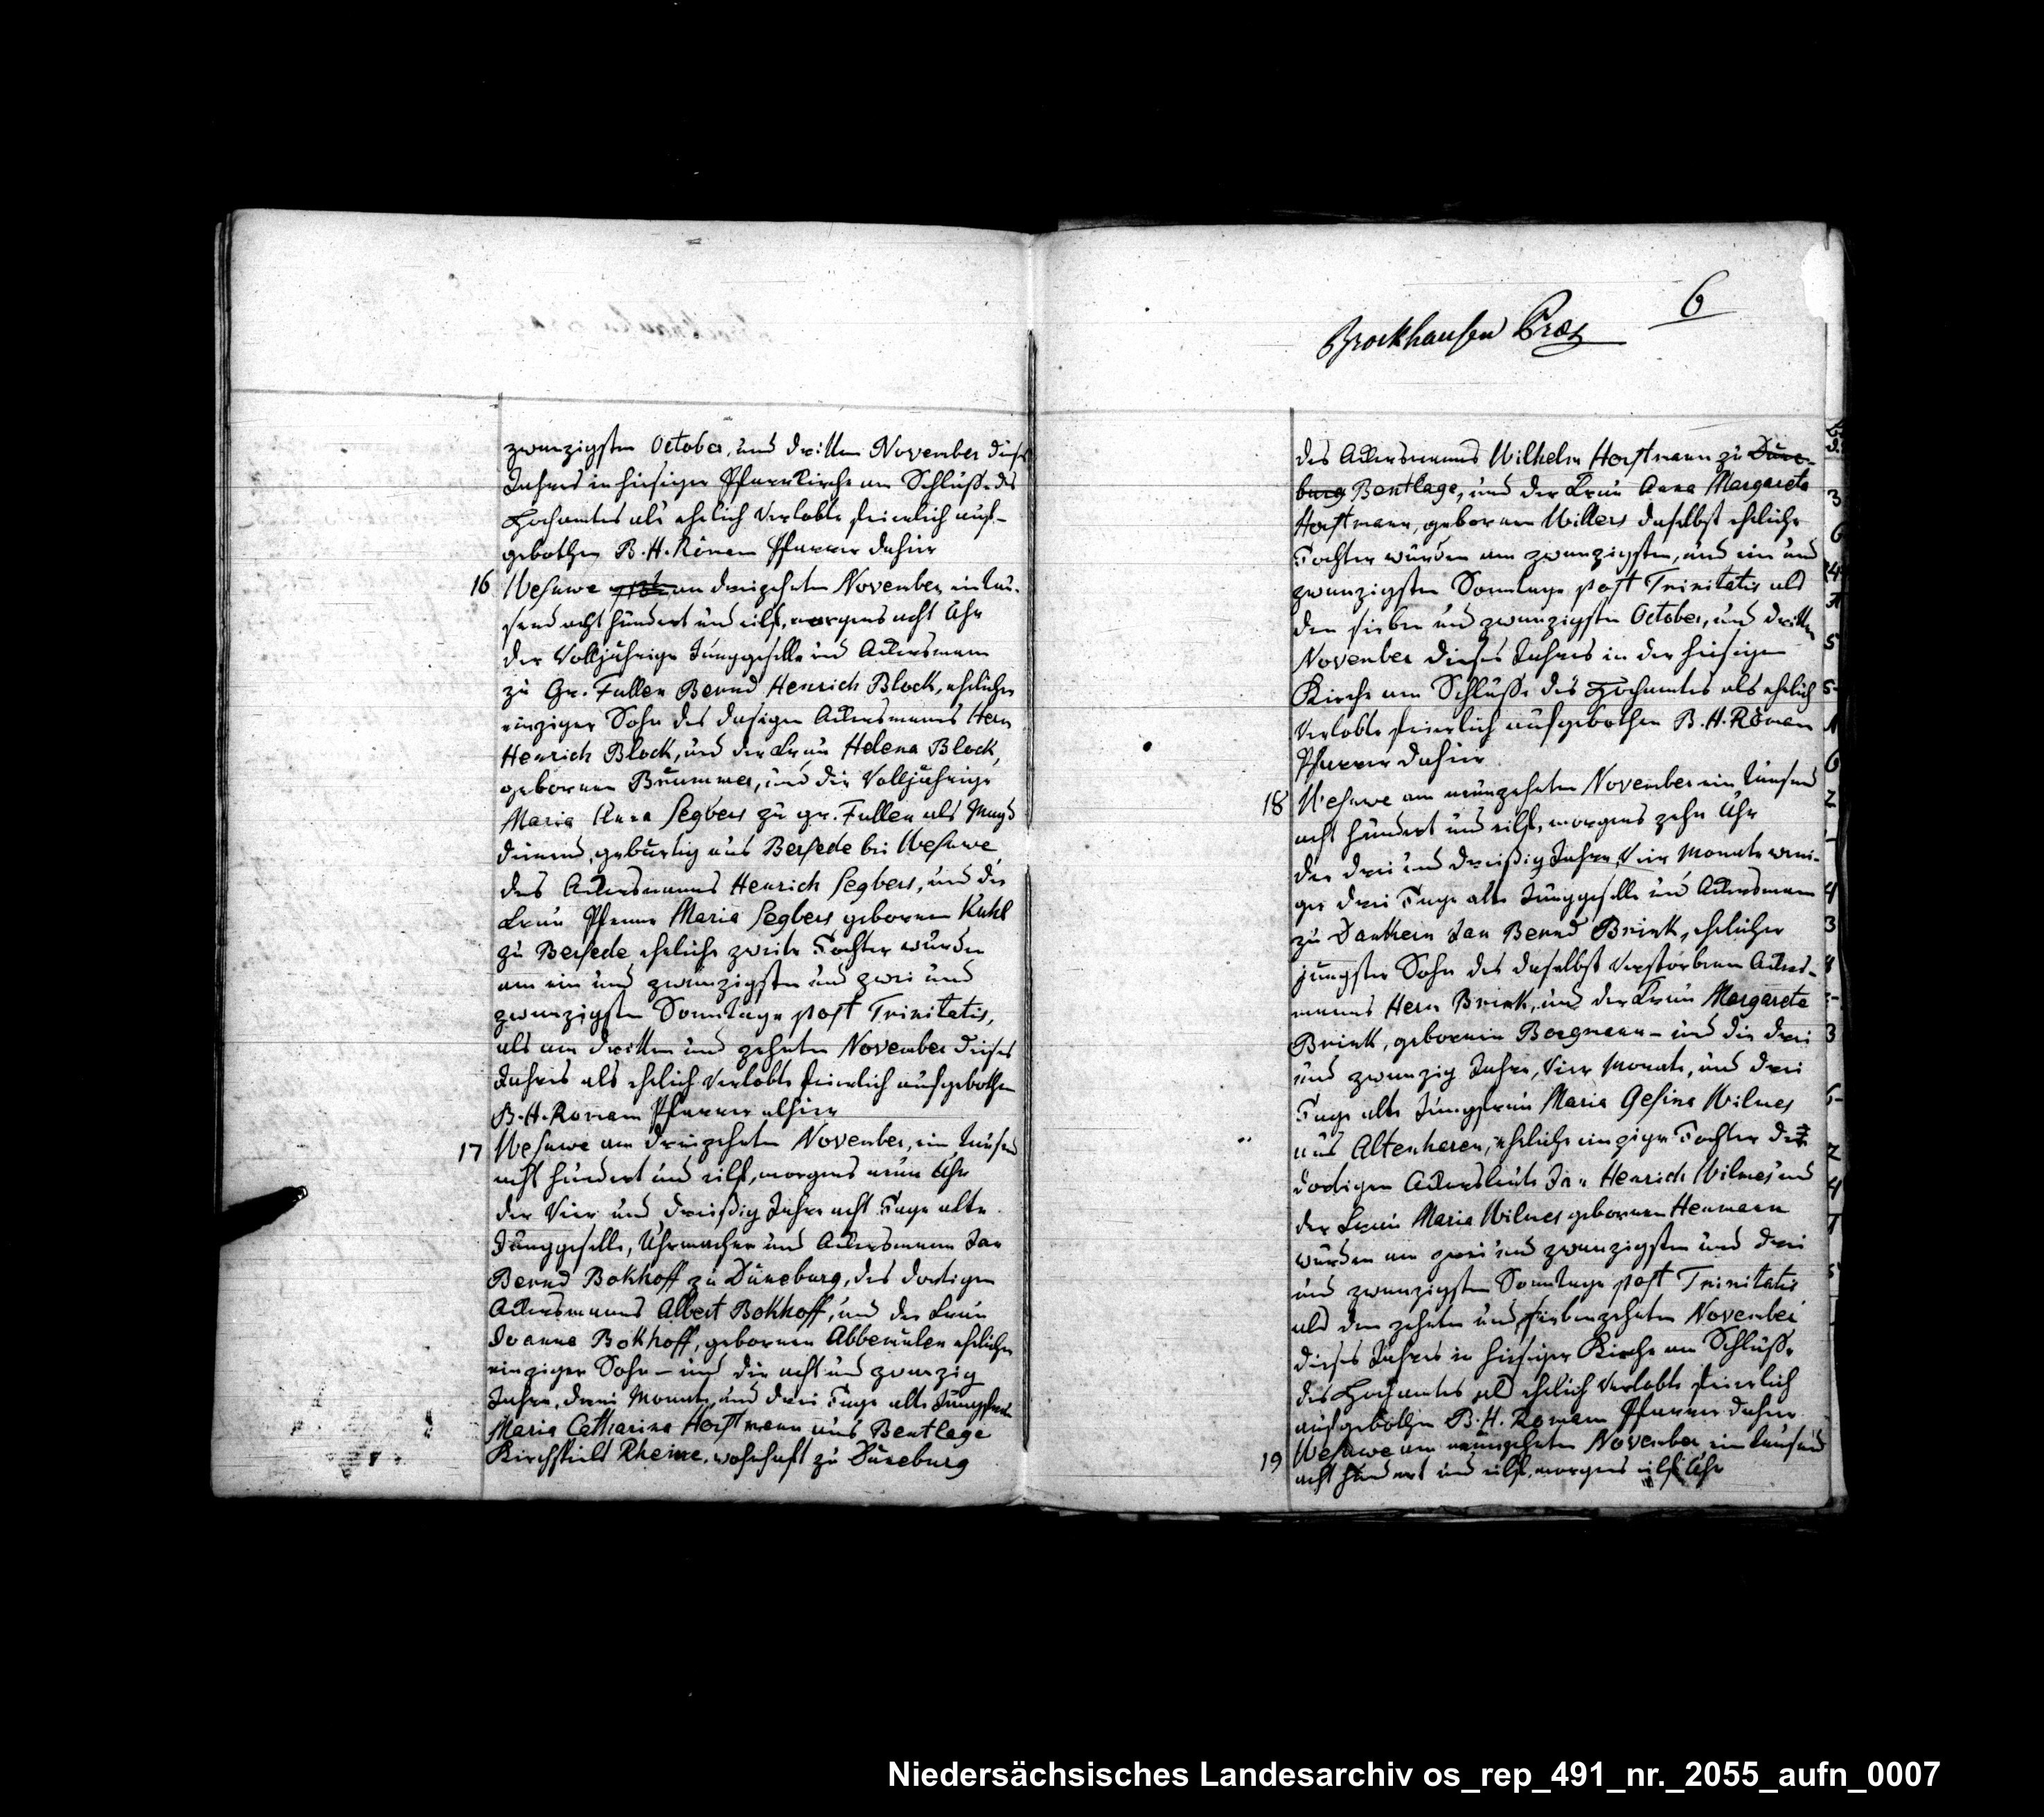 zwanzigsten October, und dritten November dieses
Jahres in hiesiger Pfarrkirche am Schluße des
Hochamtes als ehelich Verlobte feierlich auf-
gebothen B. H. Pfarrer dahier
16 Wesuwe am dreizehnten November ein tau-
send acht hundert und eilf, morgens acht Uhr
der Volljährige Junggeselle und Ackersmann
zu Gr. Fullen Bernd Henrich Block, ehelicher
einziger Sohn des dasigen Ackersmanns Herm
Henrich Block, und der Frau Helena Block,
gebornen Brümmer, und die Volljährige
Maria Anna Segbers zu gr. Fullen als Magd
dienend, gebürtig aus Bersede bei Wesuwe
des Ackersmanns Henrich Segbers, und der
Frau Maria Segbers gebornen Kuhl
zu Bersede eheliche zweite Tochter wurden
am ein und zwanzigsten und zwei und
zwanzigsten Sonntage post Trinitatis,
als am dritten und zehnten November dieses
Jahres als ehelich Verlobte feierlich aufgebothen
B. H. Pfarrer alhier
17 Wesuwe am dreizehnten November, ein tausend
acht hundert und eilf, morgens neun Uhr
der Vier und dreißig Jahre acht Tage alte
Junggeselle, Uhrmacher und Ackersmann Jan
Bernd Bokhoff zu Düneburg, des dortigen
Ackersmanns Albert Bokhoff, und der Frau
Joanna Bokhoff, gebornen Abbemulen ehelicher
einziger Sohn – und die acht und zwanzig
Jahre, drei Monate, und drei Tage alte Jungfrau
Maria Catharina Horstmann aus Bentlage
Kirchspiels Rheine, wohnhaft zu Düneburg
6
Brockhausen
des Ackersmanns Wilhelm Horstmann zu Düne-
burg Bentlage, und der Frau Anna Margareta
Horstmann, gebornen Willers daselbst eheliche
Tochter wurden am zwanzigsten, und ein und
zwanzigsten Sonntage post Trinitatis als
den sieben und zwanzigsten October, und dritten
November dieses Jahres in der hiesigen
Kirche am Schluße des Hochamtes als ehelich
Verlobte feierlich aufgebothen B. H.
Pfarrer dahier
18 Wesuwe am neunzehnten November ein tausend
acht hundert und eilf, morgens zehn Uhr
der drei und dreißig Jahre, Vier Monate weni-
ger drei Tage alte Junggeselle und Ackersmann
zu Dankern Jan Bernd Brink, ehelicher
jüngster Sohn des daselbst verstorbenen Ackers-
manns Herm Brink, und der Frau Margareta
Brink, gebornen Borgmann – und die drei
und zwanzig Jahre, Vier Monate, und drei
Tage alte Jungfrau Maria Gesina Wilmes
aus Altenharen, eheliche einzige Tochter der
dortigen Ackersleute Jan Henrich Wilmes und
der Frau Maria Wilmes gebornen Hermann
wurden am zwei und zwanzigsten und drei
und zwanzigsten Sonntage post Trinitatis
als den zehnten und siebenzehnten November
dieses Jahres in hiesiger Kirche am Schluße
des Hochamtes als ehelich Verlobte feierlich
aufgebothen B. H. Pfarrer dahier
19 Wesuwe am neunzehnten November ein tausend
acht hundert und eilf, morgens eilf Uhr
Niedersächsisches Landesarchiv os_rep_491_nr._2055_aufn_0007